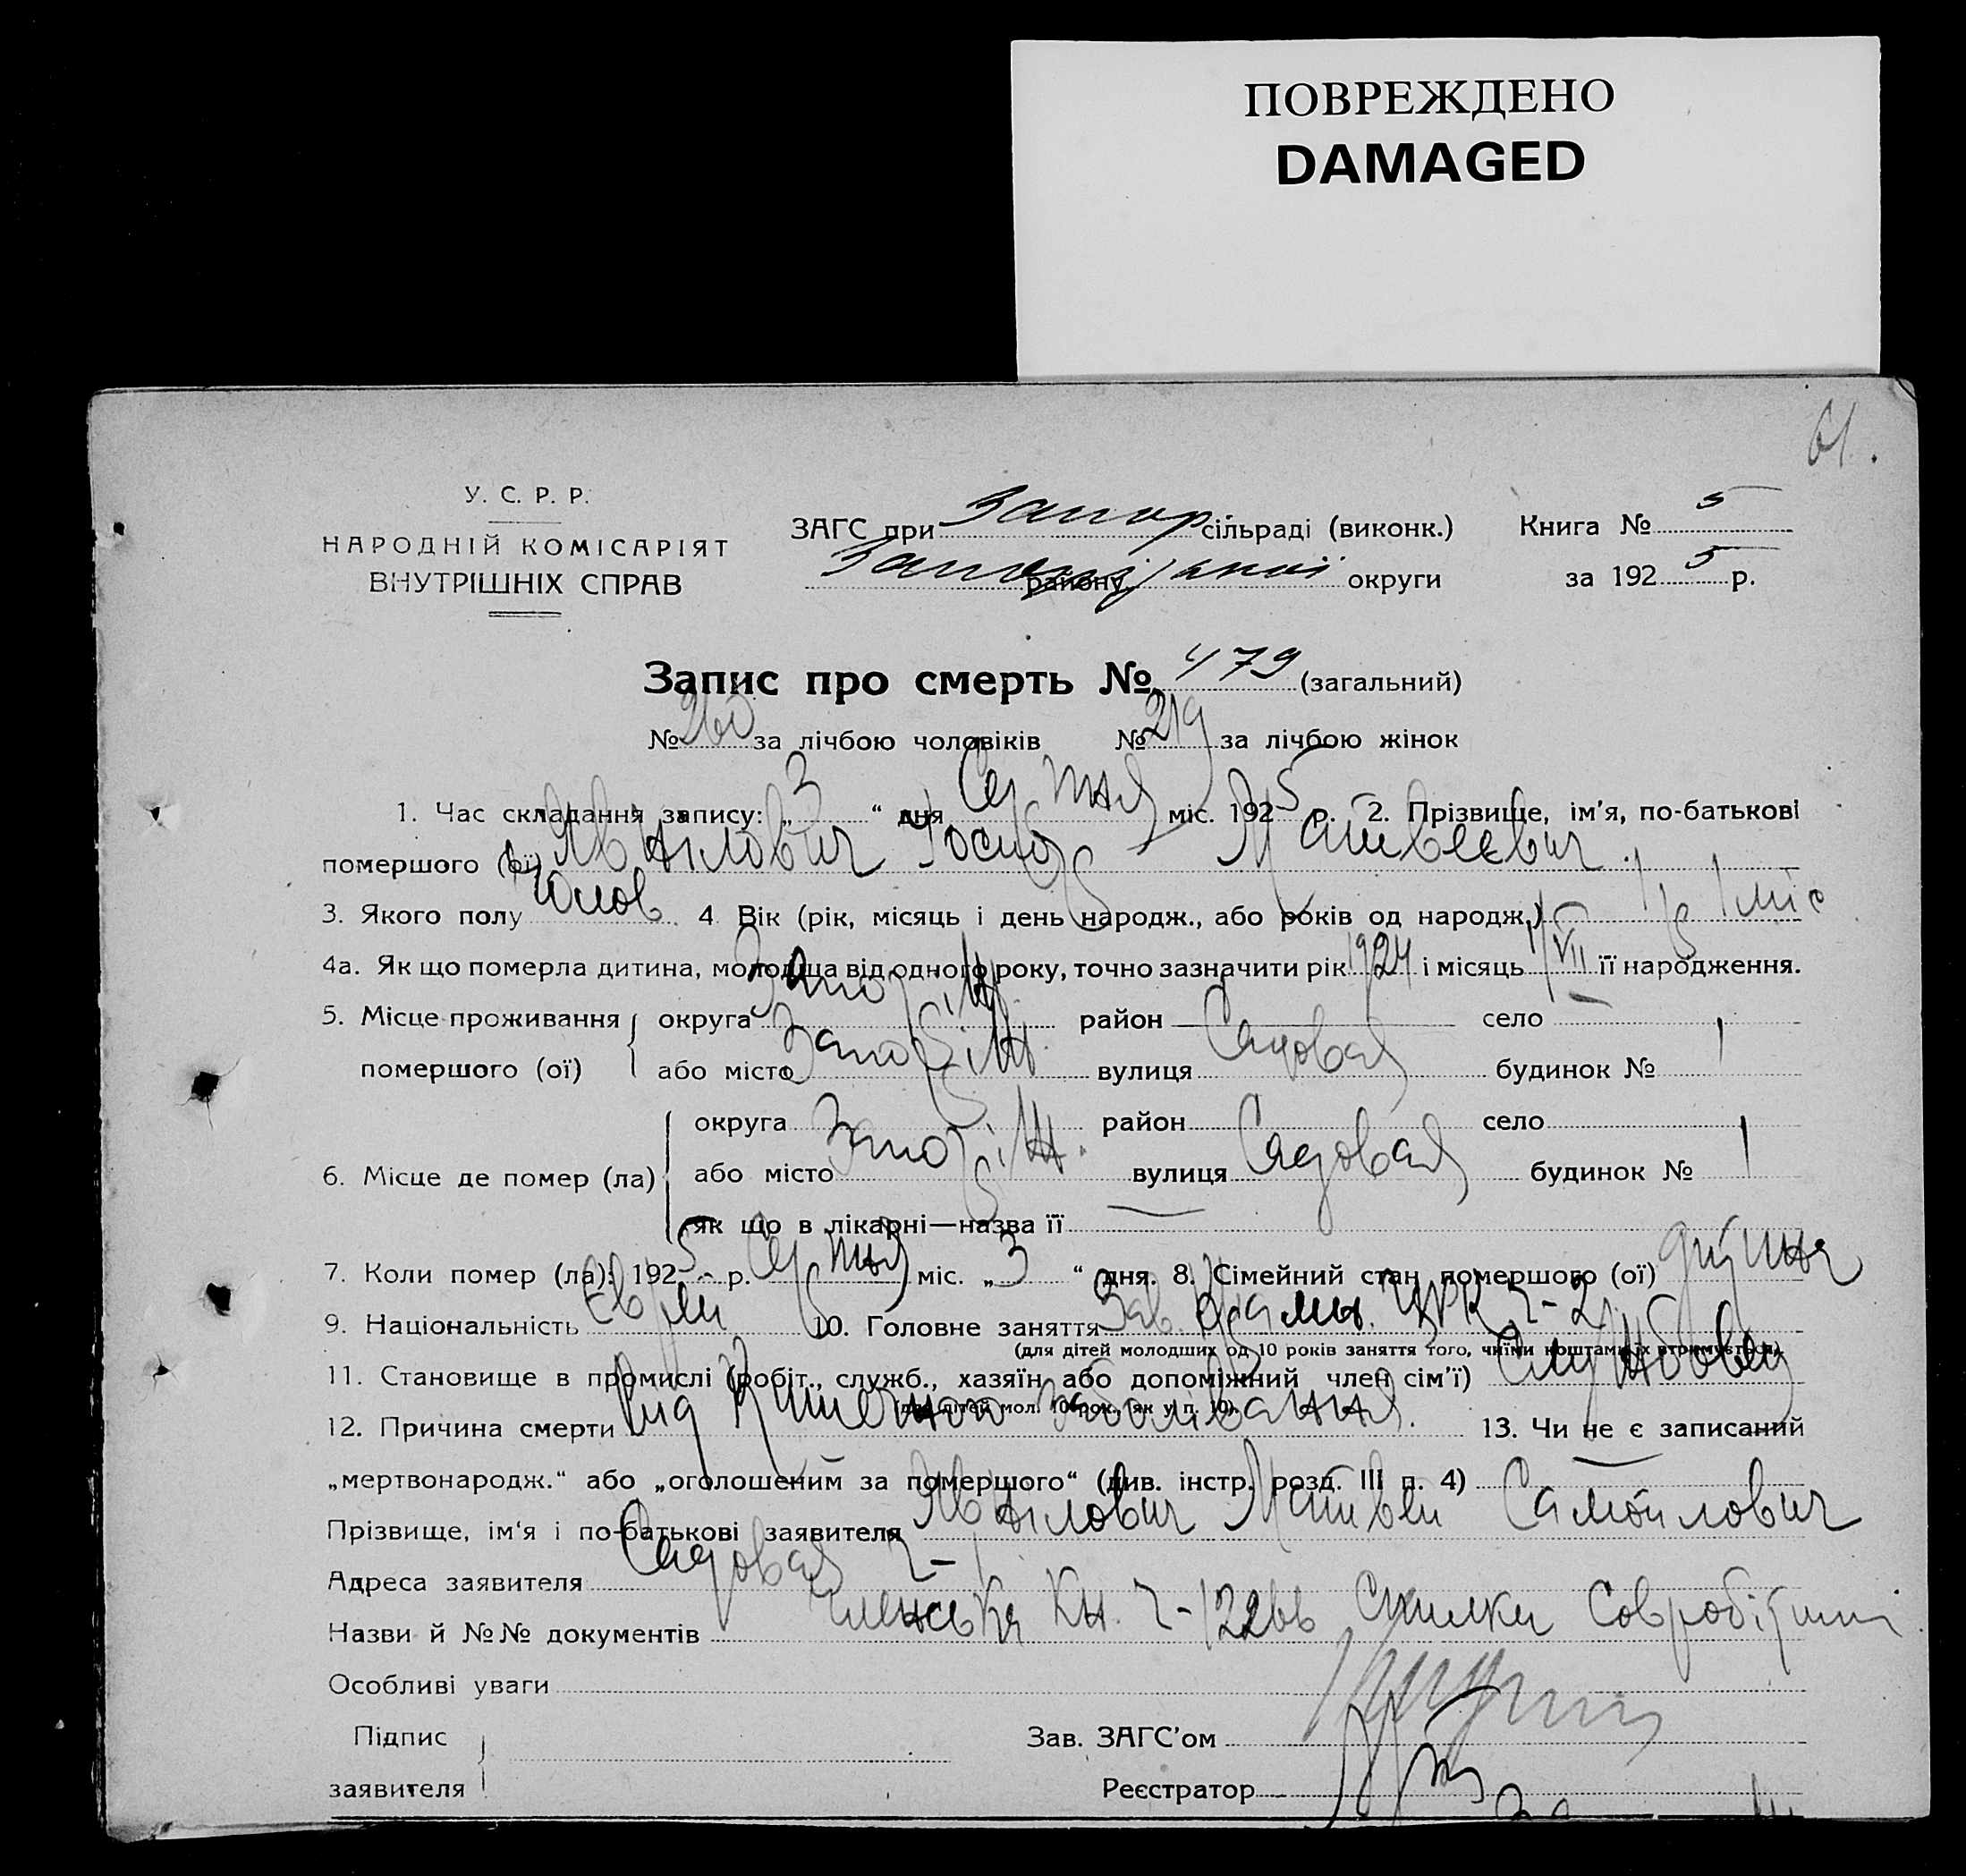 ПОВРЕЖДЕНО
DAMAGED
61.
У. С. Р. Р.
НАРОДНІЙ КОМІСАРІЯТ
ВНУТРІШНІХ СПРАВ
ЗАГС при Запор сільраді (виконк.) Книга № 5
району округи за 192 5 р.
Запис про смерть № 479 (загальний)
№ 260 за лічбою чоловіків № 219 за лічбою жінок
1. Час складання запису: „ 3 “ дня Серпня міс. 192 5 р. 2. Прізвище, ім’я, по-батькові
помершого (ої) Іосиф Матвеєвич.
3. Якого полу Чолов 4 Вік (рік, місяць і день народж., або років од народж.) 1 р 1 міс
4а. Як що померла дитина, молодша від одного року, точно зазначити рік 1924 і місяць 1/VII її народження.
5. Місце проживання округа Запоріж. район село
помершого (ої) або місто Запоріж. вулиця Садовая будинок № 1
округа район село
6. Місце де помер (ла) або місто Запоріж. вулиця Садовая будинок № 1
як що в лікарні—назва її —
7. Коли помер (ла): 192 5 р. Серпня міс. „ 3 “ дня. 8. Сімейний стан помершого (ої) дитина
9. Національність Єврей 10. Головне заняття Зав. ЦРК ч-2
(для дітей молодших од 10 років заняття того, чиїми коштами їх втримується).
11. Становище в промислі (робіт., служб., хазяїн або допоміжний член сім’ї) Службовец
(для дітей мол. 10 рок. як у п. 10)
12. Причина смерти Від Кишечного заболівання. 13. Чи не є записаний
„мертвонародж.“ або „оголошеним за помершого“ (див. інстр. розд. III п. 4) —
Прізвище, ім‘я і по-батькові заявителя Матвей Самойлович
Адреса заявителя Садовая ч-1
Назви й №№ документів Членська Кн. ч- Спилки
Особливі уваги
Підпис Зав. ЗАГС’ом
заявителя Реєстратор